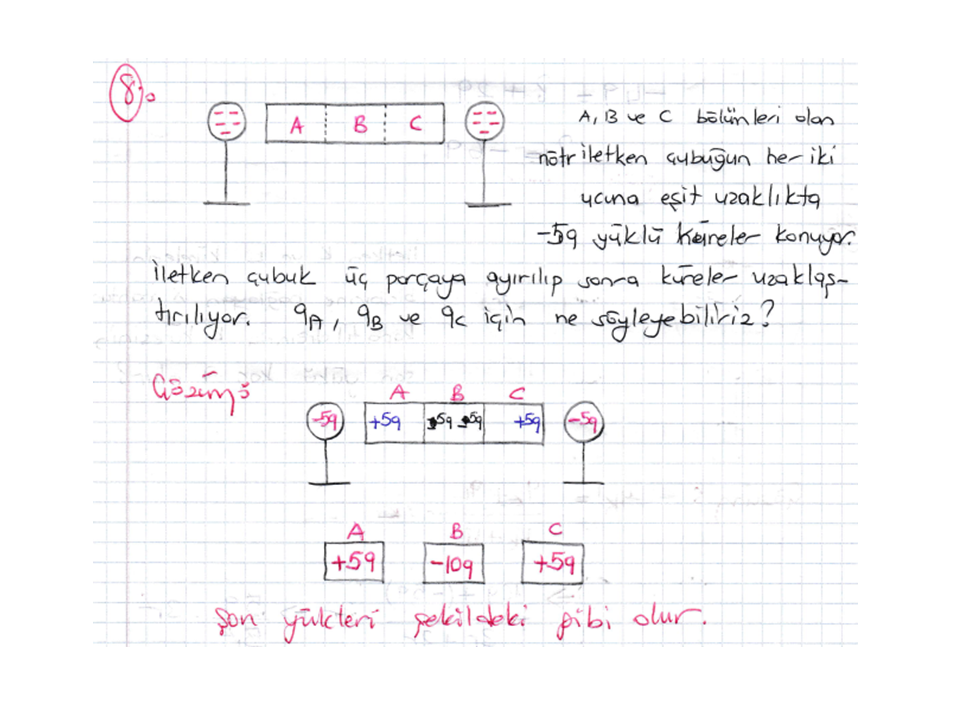 8.
A B C
A, B ve C bölümleri olan
nötr iletken çubuğun her iki
ucuna eşit uzaklıkta
-5q yüklü küreler konuyor.
İletken çubuk üç parçaya ayırılıp sonra küreler uzaklaş-
tırılıyor. qA, qB ve qC için ne söyleyebiliriz?
Çözüm:
A B C
-5q +5q -5q -5q +5q -5q
A B C
+5q -10q +5q
Son yükleri şekildeki gibi olur.